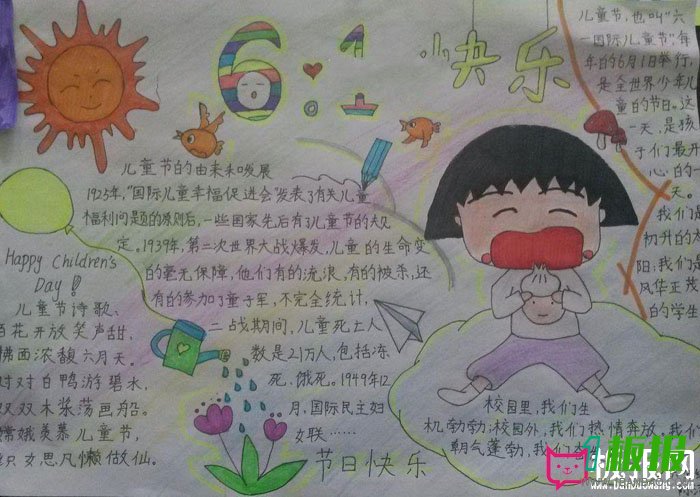 6.1
快乐
儿童节的由来和发展
1925年,"国际儿童幸福促进会"发表了有关儿童
福利问题的原则后,一些国家先后有了儿童节的规
定。1939年,第二次世界大战爆发,儿童的生命变
的毫无保障,他们有的流浪,有的被杀,还
有的参加了童子军,不完全统计,
二战期间,儿童死亡人
数是21万人,包括冻
死,饿死。1949年12
月,国际民主妇
女联……
儿童节,也叫"六
一国际儿童节",每
年的6月1日举行,
是全世界少年儿
童的节日。这
一天,是孩
子们最开
心的一
天。
我们是
初升的太
阳;我们是
风华正茂
的学生
Happy Children's
Day!
儿童节诗歌、
百花开放笑声甜,
拂面浓馥六月天。
对对白鸭游碧水,
双双木桨荡画船。
嫦娥羡慕儿童节,
织女思凡懒做仙。
校园里,我们生
机勃勃;校园外,我们热情奔放,我们
朝气蓬勃,我们
节日快乐
板报网
www.banbaowang.com